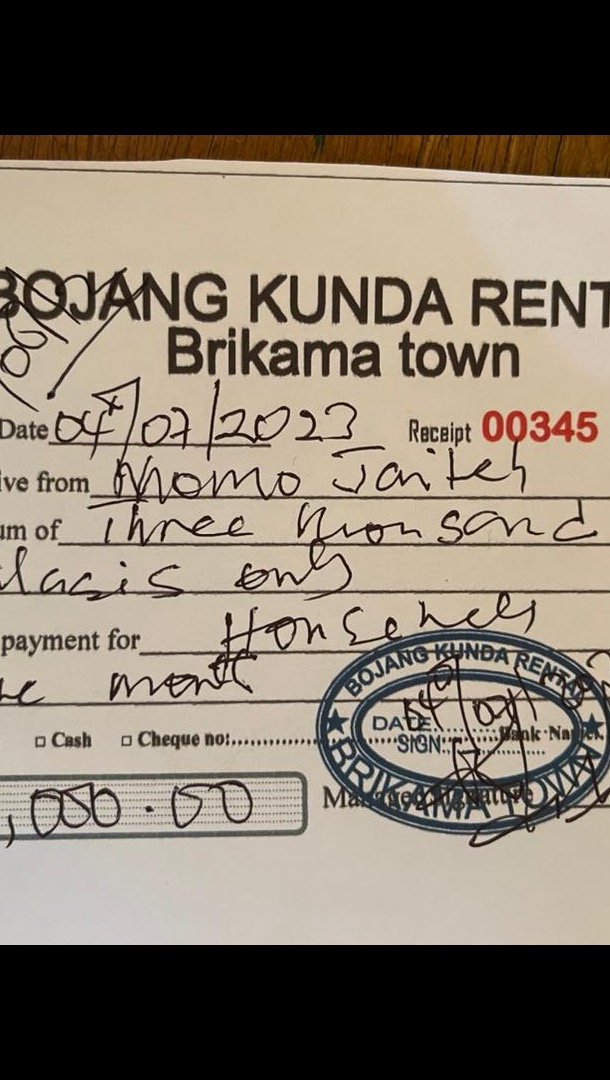 BOJANG KUNDA RENT
Brikama town
Date 04/07/2023 Receipt 00345
ive from Momo Jaiteh
um of Three thousand
lasis only
payment for
month
Cash Cheque no:
BOJANG KUNDA RENTAL
DATE: 04/07/
SIGN:
BRIKAMA TOWN
,000.00